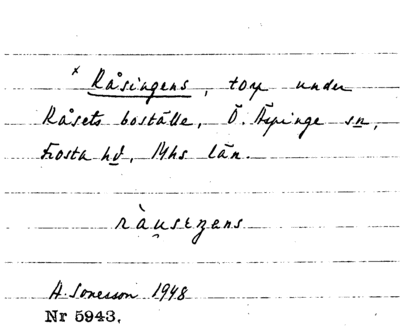 x Råsingens, torp under
Råsets boställe, Ö. Äspinge sn,
Frosta hd, Mhs län.
A. Sonesson 1948
Nr 5943.